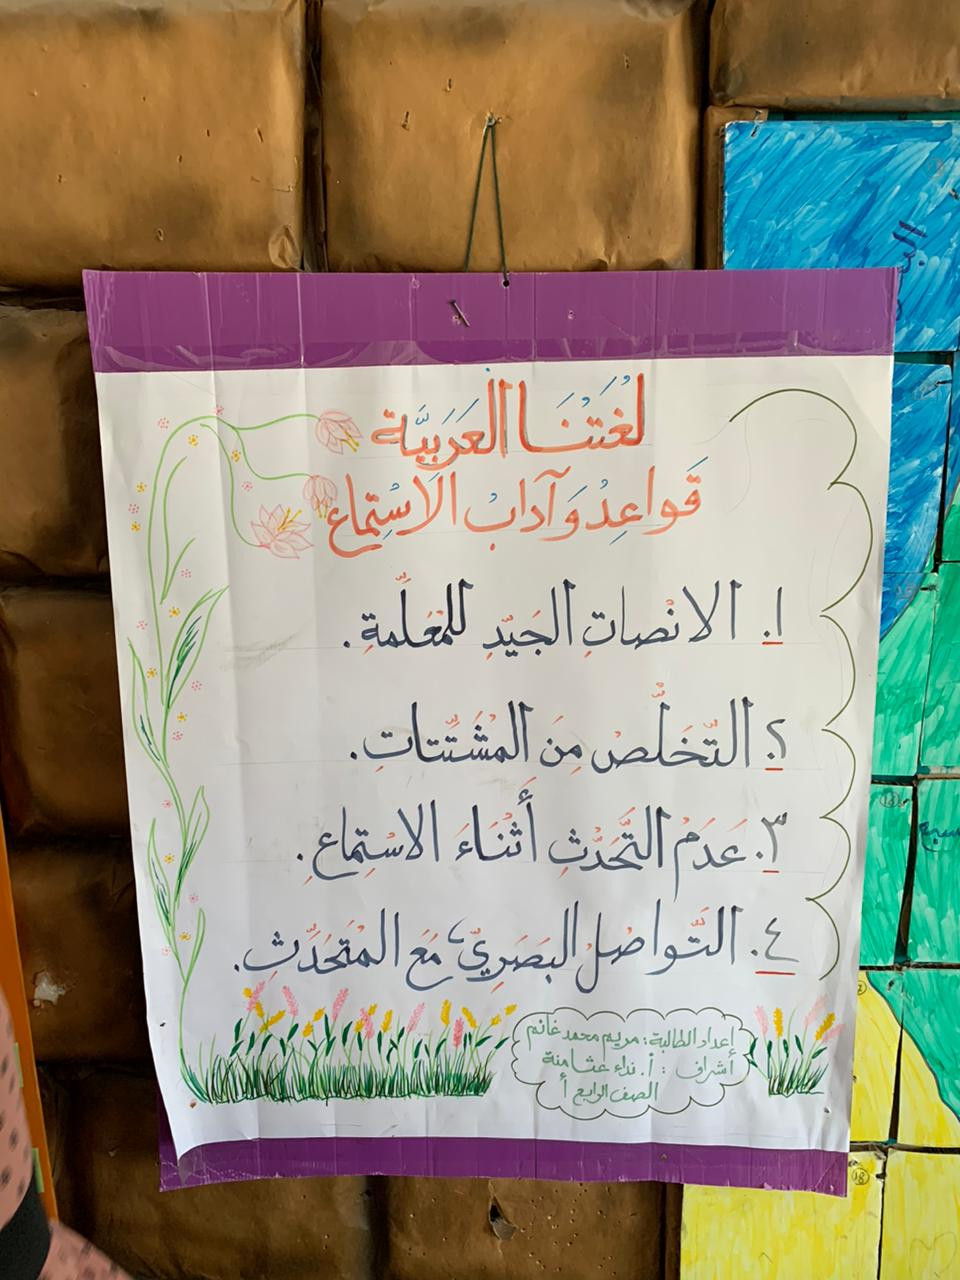 لُغَتُنَا العَرَبِيَّة
قَواعِدُ وَآدابُ الاسْتِماع
١. الانْصاتِ الجَيّدِ للمُعَلّمةِ.
٢. التّخَلّص مِنَ المشَتّتاتِ.
٣. عَدَمُ التَّحَدّثِ أَثْنَاءَ الاسْتِماعِ.
٤. التّواصُل البَصَرِيّ مَعَ المتَحَدّثِ.
إعداد الطالبة: مريم محمد غانم
أشراف : أ. نداء عثامنة
الصف الرابع أ